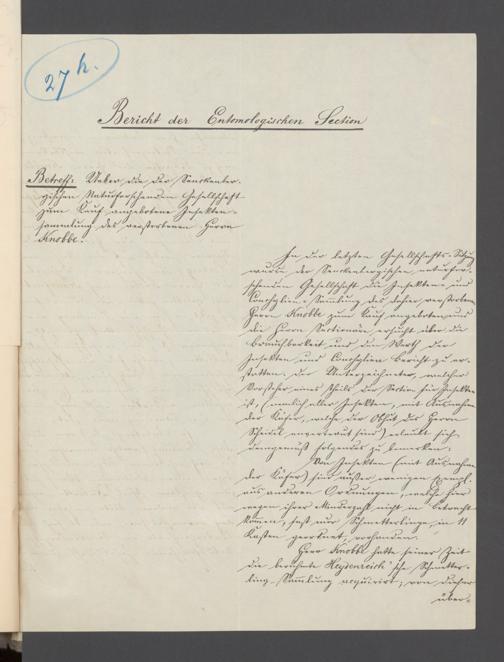 27 h.
Bericht der Entomologischen Section
Betreff: Ueber die der Senckenber-
gischen Naturforschenden Gesellschaft
zum Kauf angebotene Insekten-
sammlung des verstorbenen Herrn
Knobbe.
In der letzten Gesellschafts-Sitzung
wurde der Senckenbergischen naturfor-
schenden Gesellschaft die Insekten- und
Conchylien-Sammlung des daher verstorbenen
Herrn Knobbe zum Kauf angeboten, und
die Herrn Sectionäre ersucht über die
Brauchbarkeit und den Werth der
Insekten und Conchylien Bericht zu er-
statten. Der Unterzeichnete, welcher
Vorsteher eines Theils der Section für Insekten
ist, (nemlich aller Insekten, mit Ausnahme
der Käfer, welche der Obhut des Herrn
Scheidel anvertraut sind) erlaubt sich
demgemäß folgendes zu bemerken:
Von Insekten (mit Ausnahme
der Käfer) sind außer wenigen Exempl.
aus anderen Ordnungen, welche hier
wegen ihrer Minderzahl nicht in Betracht
kommen, fast nur Schmetterlinge, in 11
Kasten geordnet, vorhanden.
Herr Knobbe hatte seiner Zeit
die berühmte Heydenreich'sche Schmetter-
ling-Sammlung acquirirt; von dieser
über-